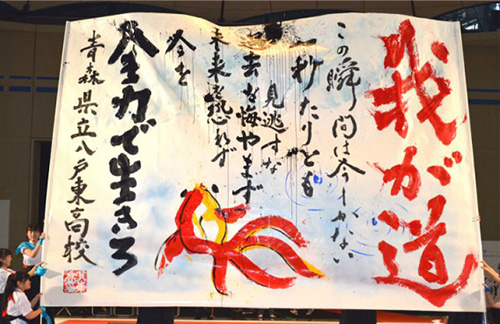 我が道
この瞬間は今しかない
一秒たりとも
見逃すな
過去を悔やまず
未来を恐れず
今を
全力で生きろ
青森県立八戸東高校